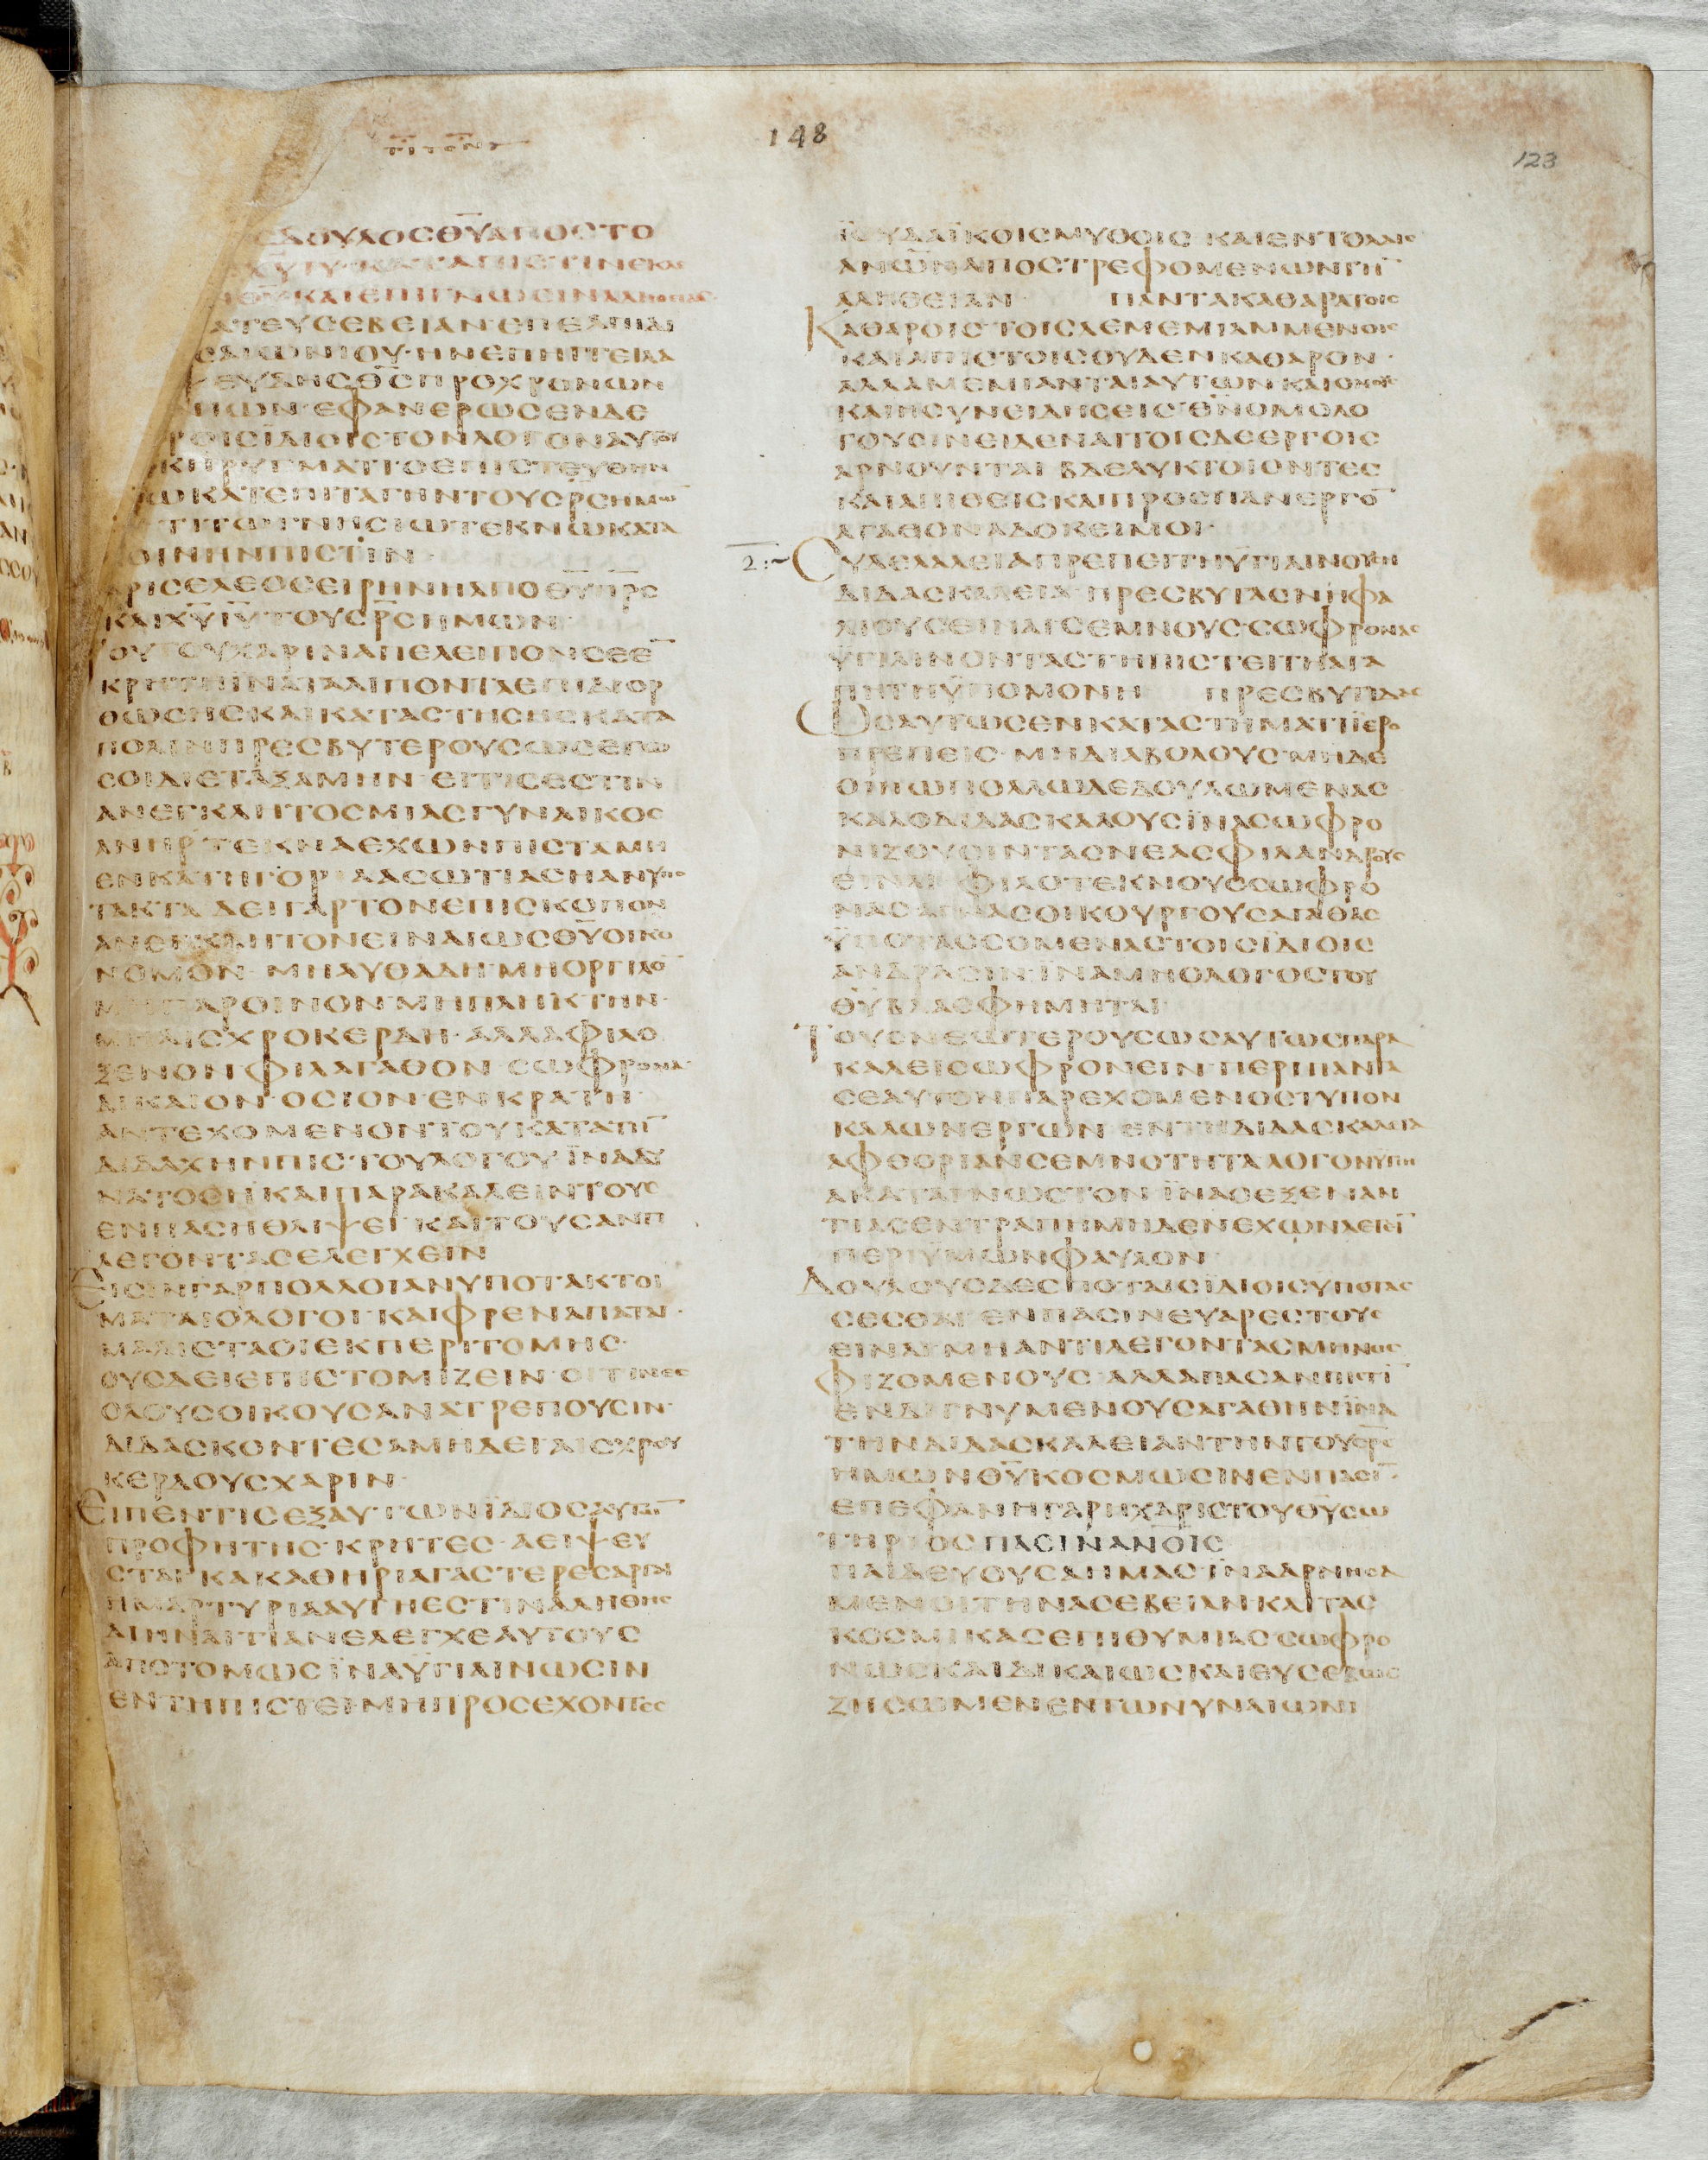 ΠΡ ΤΙΤΟΝ
148
123
ΔΟΥΛΟΣ ΘΥ ΑΠΟΣΤΟ
ΧΥ ΙΥ ΚΑΤΑ ΠΙΣΤΙΝ ΕΚΛΕ
ΘΥ ΚΑΙ ΕΠΙΓΝΩΣΙΝ ΑΛΗΘΙΑΣ
ΚΑΤ ΕΥΣΕΒΕΙΑΝ ΕΠ ΕΛΠΙΔΙ
ΣΑΙΩΝΙΟΥ· ΗΝ ΕΠΗΓΓΕΙΛΑ
ΨΕΥΔΗΣ ΘΣ ΠΡΟ ΧΡΟΝΩΝ
ΝΙΩΝ· ΕΦΑΝΕΡΩΣΕΝ ΔΕ
ΡΟΙΣ ΪΔΙΟΙΣ ΤΟΝ ΛΟΓΟΝ ΑΥΤΟΥ
ΚΗΡΥΓΜΑΤΙ Ο ΕΠΙΣΤΕΥΘΗΝ
ΓΩ ΚΑΤ ΕΠΙΤΑΓΗΝ ΤΟΥ ΣΡΣ ΗΜΩ
ΤΙΤΩ ΓΝΗΣΙΩ ΤΕΚΝΩ ΚΑΤΑ
ΚΟΙΝΗΝ ΠΙΣΤΙΝ·
ΧΑΡΙΣ ΕΛΕΟΣ ΕΙΡΗΝΗ ΑΠΟ ΘΥ ΠΡΣ
ΚΑΙ ΧΥ ΙΥ ΤΟΥ ΣΡΣ ΗΜΩΝ
ΤΟΥΤΟΥ ΧΑΡΙΝ ΑΠΕΛΕΙΠΟΝ ΣΕ Ε
ΚΡΗΤΗ ΙΝΑ ΤΑ ΛΙΠΟΝΤΑ ΕΠΙΔΙΟΡ
ΘΩΣΗΣ ΚΑΙ ΚΑΤΑΣΤΗΣΗΣ ΚΑΤΑ
ΠΟΛΙΝ ΠΡΕΣΒΥΤΕΡΟΥΣ ΩΣ ΕΓΩ
ΣΟΙ ΔΙΕΤΑΞΑΜΗΝ· ΕΙ ΤΙΣ ΕΣΤΙΝ
ΑΝΕΓΚΛΗΤΟΣ ΜΙΑΣ ΓΥΝΑΙΚΟΣ
ΑΝΗΡ· ΤΕΚΝΑ ΕΧΩΝ ΠΙΣΤΑ ΜΗ
ΕΝ ΚΑΤΗΓΟΡΙΑ ΑΣΩΤΙΑΣ Η ΑΝΥΠΟ
ΤΑΚΤΑ ΔΕΙ ΓΑΡ ΤΟΝ ΕΠΙΣΚΟΠΟΝ
ΑΝΕΓΚΛΗΤΟΝ ΕΙΝΑΙ ΩΣ ΘΥ ΟΙΚΟ
ΝΟΜΟΝ· ΜΗ ΑΥΘΑΔΗ· ΜΗ ΟΡΓΙΛΟ
ΜΗ ΠΑΡΟΙΝΟΝ· ΜΗ ΠΛΗΚΤΗΝ·
ΜΗ ΑΙΣΧΡΟΚΕΡΔΗ· ΑΛΛΑ ΦΙΛΟ
ΞΕΝΟΝ ΦΙΛΑΓΑΘΟΝ· ΣΩΦΡΟΝΑ·
ΔΙΚΑΙΟΝ· ΟΣΙΟΝ· ΕΝΚΡΑΤΗ·
ΑΝΤΕΧΟΜΕΝΟΝ ΤΟΥ ΚΑΤΑ ΤΗ
ΔΙΔΑΧΗΝ ΠΙΣΤΟΥ ΛΟΓΟΥ· ΪΝΑ ΔΥ
ΝΑΤΟΣ Η ΚΑΙ ΠΑΡΑΚΑΛΕΙΝ ΤΟΥΣ
ΕΝ ΠΑΣΗ ΘΛΙΨΕΙ ΚΑΙ ΤΟΥΣ ΑΝΤΙ
ΛΕΓΟΝΤΑΣ ΕΛΕΓΧΕΙΝ
ΕΙΣΙΝ ΓΑΡ ΠΟΛΛΟΙ ΑΝΥΠΟΤΑΚΤΟΙ
ΜΑΤΑΙΟΛΟΓΟΙ· ΚΑΙ ΦΡΕΝΑΠΑΤΑΙ·
ΜΑΛΙΣΤΑ ΟΙ ΕΚ ΠΕΡΙΤΟΜΗΣ·
ΟΥΣ ΔΕΙ ΕΠΙΣΤΟΜΙΖΕΙΝ· ΟΙΤΙΝΕΣ
ΟΛΟΥΣ ΟΙΚΟΥΣ ΑΝΑΤΡΕΠΟΥΣΙΝ·
ΔΙΔΑΣΚΟΝΤΕΣ Α ΜΗ ΔΕΙ ΑΙΣΧΡΟΥ
ΚΕΡΔΟΥΣ ΧΑΡΙΝ·
ΕΙΠΕΝ ΤΙΣ ΕΞ ΑΥΤΩΝ ΪΔΙΟΣ ΑΥΤΩ
ΠΡΟΦΗΤΗΣ· ΚΡΗΤΕΣ· ΑΕΙ ΨΕΥ
ΣΤΑΙ ΚΑΚΑ ΘΗΡΙΑ ΓΑΣΤΕΡΕΣ ΑΡΓΑΙ
Η ΜΑΡΤΥΡΙΑ ΑΥΤΗ ΕΣΤΙΝ ΑΛΗΘΗΣ
ΔΙ ΗΝ ΑΙΤΙΑΝ ΕΛΕΓΧΕ ΑΥΤΟΥΣ
ΑΠΟΤΟΜΩΣ ΪΝΑ ΥΓΙΑΙΝΩΣΙΝ
ΕΝ ΤΗ ΠΙΣΤΕΙ ΜΗ ΠΡΟΣΕΧΟΝΤΕΣ
ΪΟΥΔΑΪΚΟΙΣ ΜΥΘΟΙΣ· ΚΑΙ ΕΝΤΟΛΑΙΣ
ΑΝΩΝ ΑΠΟΣΤΡΕΦΟΜΕΝΩΝ ΤΗ
ΑΛΗΘΕΙΑΝ· ΠΑΝΤΑ ΚΑΘΑΡΑ ΤΟΙΣ
ΚΑΘΑΡΟΙΣ· ΤΟΙΣ ΔΕ ΜΕΜΙΑΜΜΕΝΟΙΣ
ΚΑΙ ΑΠΙΣΤΟΙΣ ΟΥΔΕΝ ΚΑΘΑΡΟΝ·
ΑΛΛΑ ΜΕΜΙΑΝΤΑΙ ΑΥΤΩΝ ΚΑΙ Ο ΝΟΥΣ
ΚΑΙ Η ΣΥΝΕΙΔΗΣΕΙΣ· ΘΝ ΟΜΟΛΟ
ΓΟΥΣΙΝ ΕΙΔΕΝΑΙ ΤΟΙΣ ΔΕ ΕΡΓΟΙΣ
ΑΡΝΟΥΝΤΑΙ ΒΔΕΛΥΚΤΟΙ ΟΝΤΕΣ
ΚΑΙ ΑΠΙΘΕΙΣ· ΚΑΙ ΠΡΟΣ ΠΑΝ ΕΡΓΟ
ΑΓΑΘΟΝ ΑΔΟΚΕΙΜΟΙ·
2 :~ ΣΥ ΔΕ ΛΑΛΕΙ Α ΠΡΕΠΕΙ ΤΗ ΥΓΙΑΙΝΟΥΣΗ
ΔΙΔΑΣΚΑΛΕΙΑ· ΠΡΕΣΒΥΤΑΣ ΝΗΦΑ
ΛΙΟΥΣ ΕΙΝΑΙ ΣΕΜΝΟΥΣ· ΣΩΦΡΟΝΑΣ
ΫΓΙΑΙΝΟΝΤΑΣ ΤΗ ΠΙΣΤΕΙ ΤΗ ΑΓΑ
ΠΗ ΤΗ ΫΠΟΜΟΝΗ ΠΡΕΣΒΥΤΙΔΑΣ
ΩΣΑΥΤΩΣ ΕΝ ΚΑΤΑΣΤΗΜΑΤΙ ΪΕΡΟ
ΠΡΕΠΕΙΣ· ΜΗ ΔΙΑΒΟΛΟΥΣ· ΜΗΔΕ
ΟΙΝΩ ΠΟΛΛΩ ΔΕΔΟΥΛΩΜΕΝΑΣ
ΚΑΛΟΔΙΔΑΣΚΑΛΟΥΣ ΪΝΑ ΣΩΦΡΟ
ΝΙΖΟΥΣΙΝ ΤΑΣ ΝΕΑΣ ΦΙΛΑΝΔΡΟΥΣ
ΕΙΝΑΙ· ΦΙΛΟΤΕΚΝΟΥΣ ΣΩΦΡΟ
ΝΑΣ ΑΓΝΑΣ ΟΙΚΟΥΡΓΟΥΣ ΑΓΑΘΑΣ
ΫΠΟΤΑΣΣΟΜΕΝΑΣ ΤΟΙΣ ΪΔΙΟΙΣ
ΑΝΔΡΑΣΙΝ· ΪΝΑ ΜΗ Ο ΛΟΓΟΣ ΤΟΥ
ΘΥ ΒΛΑΣΦΗΜΗΤΑΙ·
ΤΟΥΣ ΝΕΩΤΕΡΟΥΣ ΩΣΑΥΤΩΣ ΠΑΡΑ
ΚΑΛΕΙ ΣΩΦΡΟΝΕΙΝ· ΠΕΡΙ ΠΑΝΤΑ
ΣΕΑΥΤΟΝ ΠΑΡΕΧΟΜΕΝΟΣ ΤΥΠΟΝ
ΚΑΛΩΝ ΕΡΓΩΝ· ΕΝ ΤΗ ΔΙΔΑΣΚΑΛΙΑ
ΑΦΘΟΡΙΑΝ ΣΕΜΝΟΤΗΤΑ ΛΟΓΟΝ ΥΓΙΗ
ΑΚΑΤΑΓΝΩΣΤΟΝ· ΪΝΑ Ο ΕΞ ΕΝΑΝ
ΤΙΑΣ ΕΝΤΡΑΠΗ ΜΗΔΕΝ ΕΧΩΝ ΛΕΓΕΙ
ΠΕΡΙ ΥΜΩΝ ΦΑΥΛΟΝ·
ΔΟΥΛΟΥΣ ΔΕΣΠΟΤΑΙΣ ΪΔΙΟΙΣ ΥΠΟΤΑΣ
ΣΕΣΘΑΙ ΕΝ ΠΑΣΙΝ ΕΥΑΡΕΣΤΟΥΣ
ΕΙΝΑΙ· ΜΗ ΑΝΤΙΛΕΓΟΝΤΑΣ ΜΗ ΝΟΣ
ΦΙΖΟΜΕΝΟΥΣ· ΑΛΛΑ ΠΑΣΑΝ ΠΙΣΤΙ
ΕΝΔΙΓΝΥΜΕΝΟΥΣ ΑΓΑΘΗΝ ΪΝΑ
ΤΗΝ ΔΙΔΑΣΚΑΛΕΙΑΝ ΤΗΝ ΤΟΥ ΣΡΣ
ΗΜΩΝ ΘΥ ΚΟΣΜΩΣΙΝ ΕΝ ΠΑΣΙ·
ΕΠΕΦΑΝΗ ΓΑΡ Η ΧΑΡΙΣ ΤΟΥ ΘΥ ΣΩ
ΤΗΡΙΟΣ ΠΑΣΙΝ ΑΝΟΙΣ
ΠΑΙΔΕΥΟΥΣΑ ΗΜΑΣ· ΙΝΑ ΑΡΝΗΣΑ
ΜΕΝΟΙ ΤΗΝ ΑΣΕΒΕΙΑΝ· ΚΑΙ ΤΑΣ
ΚΟΣΜΙΚΑΣ ΕΠΙΘΥΜΙΑΣ ΣΩΦΡΟ
ΝΩΣ ΚΑΙ ΔΙΚΑΙΩΣ ΚΑΙ ΕΥΣΕΒΩΣ
ΖΗΣΩΜΕΝ ΕΝ ΤΩ ΝΥΝ ΑΙΩΝΙ